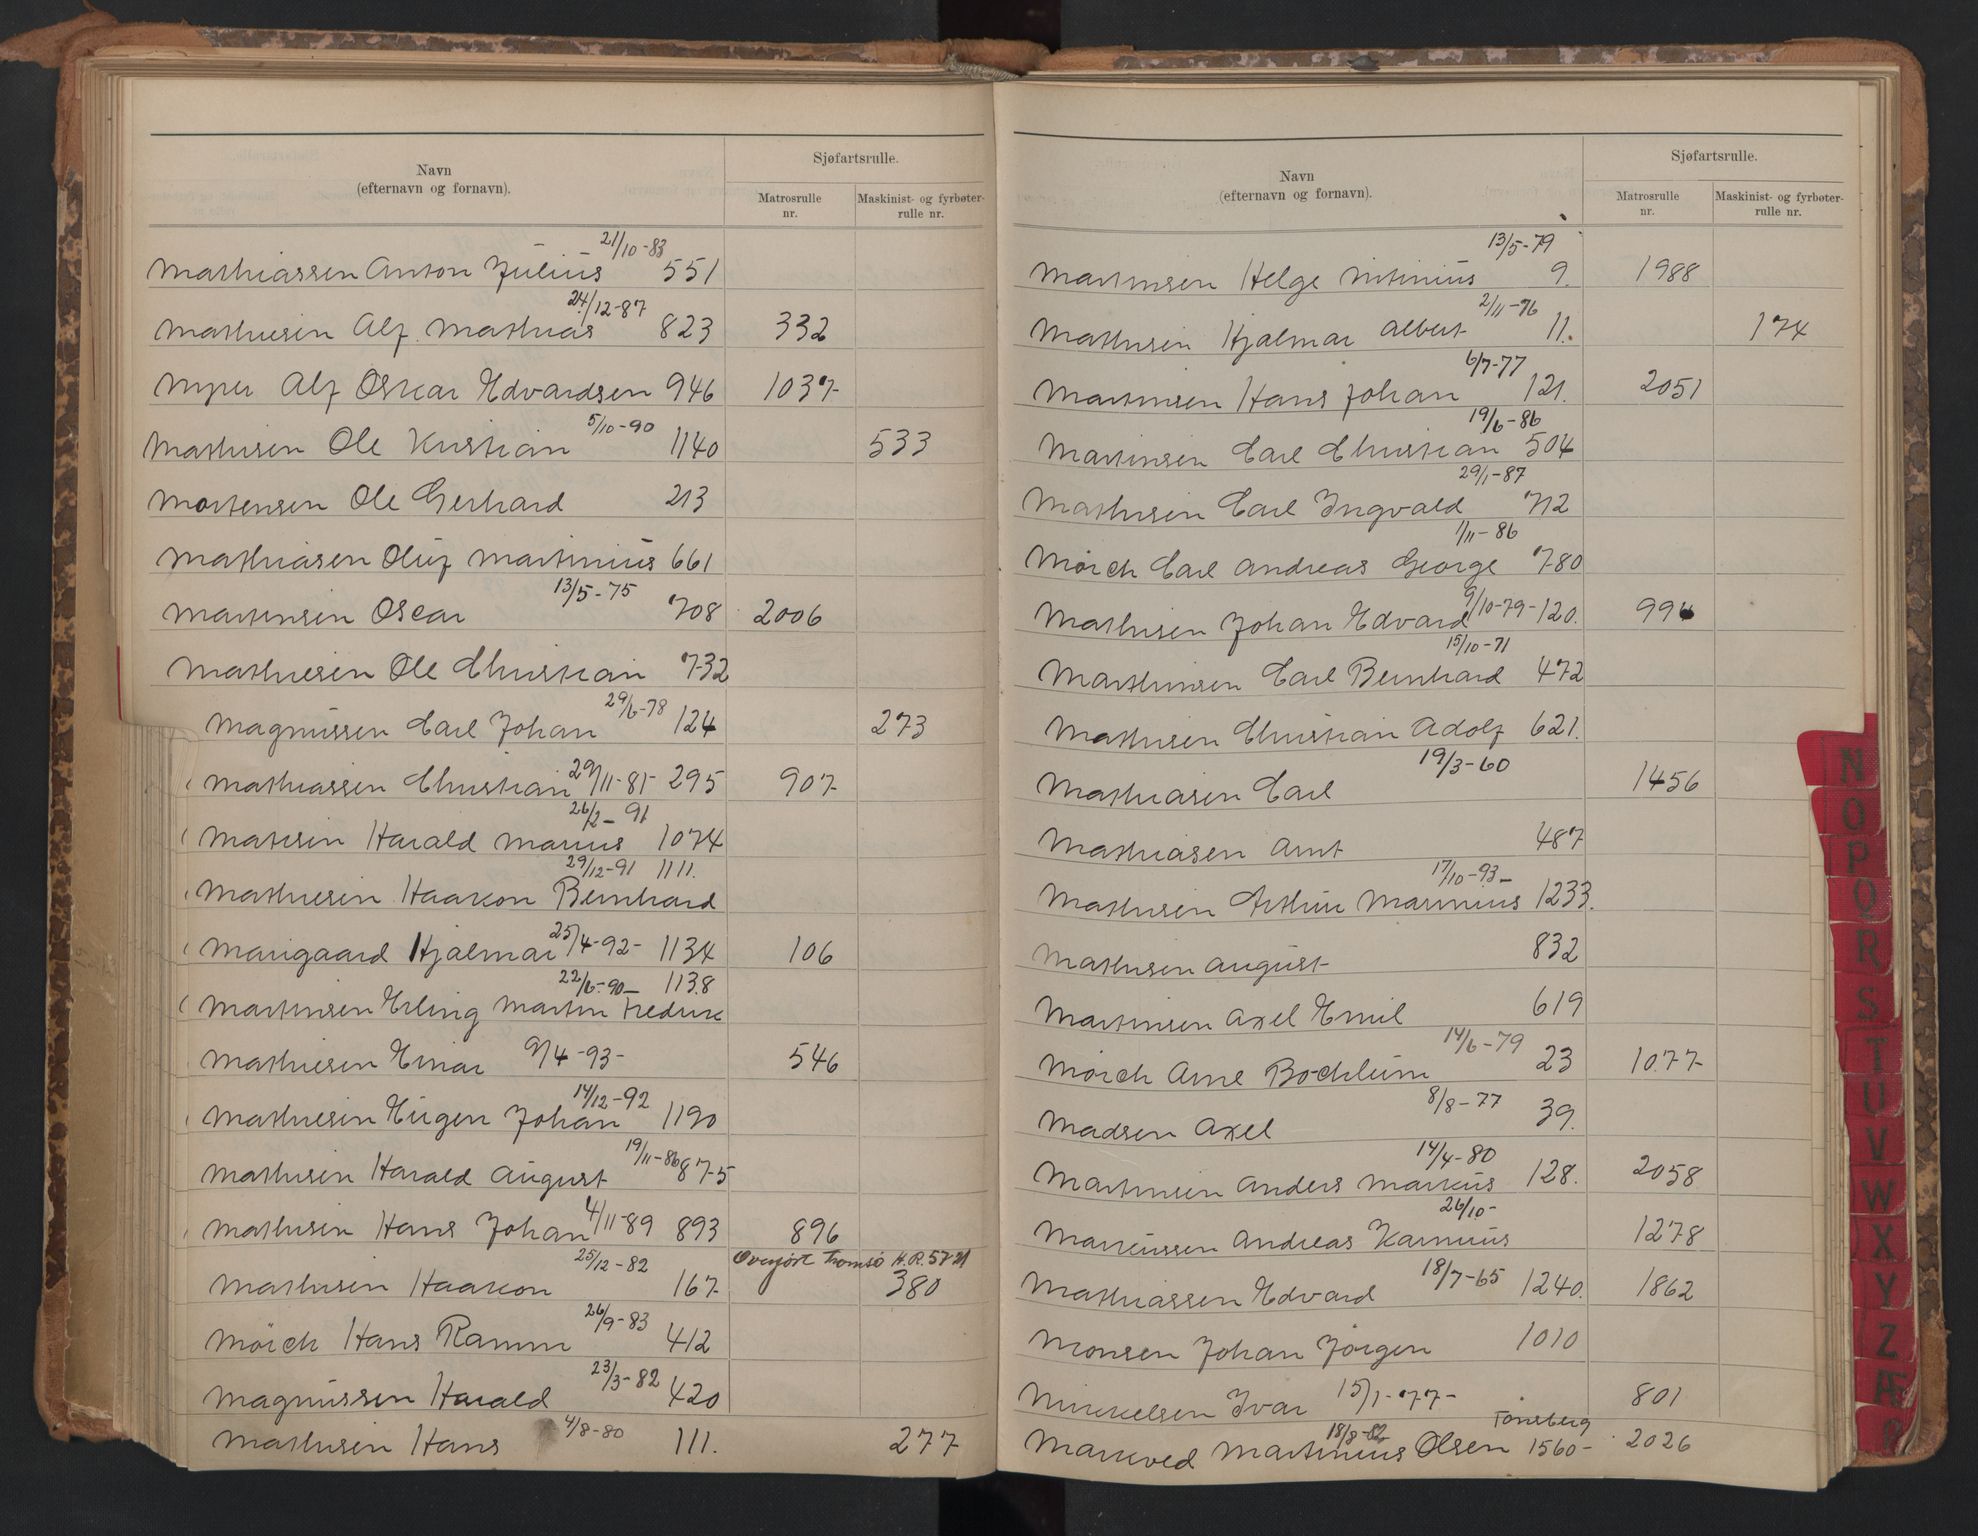 Navn
(efternavn og fornavn).
Sjøfartsrulle.
Matrosrulle
nr.
Maskinist- og fyrbøter-
rulle nr.
21/10-83
Mathiassen Anton Julius 551
24/12-87
Mathiesen Alf Mathias 823 332
Myrer Alf Oskar Edvardsen 946 1037
5/10-90
Mathisen Ole Kristian 1140 533
Mortensen Ole Gerhard 213
Mathiasen Oluf Martinius 661
13/5-75
Martinsen Oscar 708 2006
Mathiesen Ole Christian 732
29/6-78
Magnussen Carl Johan 124 273
Mathiassen Christian 29/11-81- 295 907
26/2-91
Mathisen Harald Marius 1074
29/12-91 1111.
Mathiesen Haakon Bernhard
Maurgaard Hjalmar 25/4-92- 1134 106
22/6-90- 1138
Martinsen Erling Martin Fredrik
Mathiesen Einar 9/4-93- 546
14/12-92
Mathiesen Eugen Johan 1190
19/11-86
Mathisen Harald August 875
Mathisen Hans Johan 4/11-89 893 896
25/12-82 Overført Tromsø H.R. 5721
Mathisen Haakon 167 380
26/9-83
Mörch Hans Ramm 412
23/3-82
Magnussen Harald 420
4/8-80
Mathisen Hans 111. 277
Navn
(efternavn og fornavn).
Sjøfartsrulle.
Matrosrulle
nr.
Maskinist- og fyrbøter-
rulle nr.
13/5-79
Martinsen Helge 9. 1988
2/11-76
Mathisen Hjalmar Albert 11. 174
6/7-77
Martinsen Hans Johan 121. 2051
19/6-86
Martinsen Carl Christian 504
29/1-87
Mathisen Carl Ingvald 712
1/11-86
Mörch Carl Andreas George 780
Mathisen Johan Edvard 9/10-79- 120. 994
15/10-71
Marthinsen Carl Bernhard 472
Mathisen Christian Adolf 621.
19/3-60
Mathiasen Carl 1456
Mathiasen Arnt 487
17/10-93-
Mathisen Arthur Marinius 1233.
Mathisen August 832
Martinsen Axel Emil 619
14/6-79
Mörch Arne Bochlum 23 1077
8/8-77
Madsen Axel 39.
14/4-80
Martinsen Anders Markus 128. 2058
26/10-
Markussen Andreas Karinius 1278
Mathiassen Edvard 18/7-65 1240. 1862
Monsen Johan Jörgen 1010
Mikkelsen Ivar 15/1-77- 801
18/8-82 Tönsberg
Markved Martinius Olsen 1560- 2026
N
O
P
Q
R
S
T
U
V
W
X
Y
Z
Æ